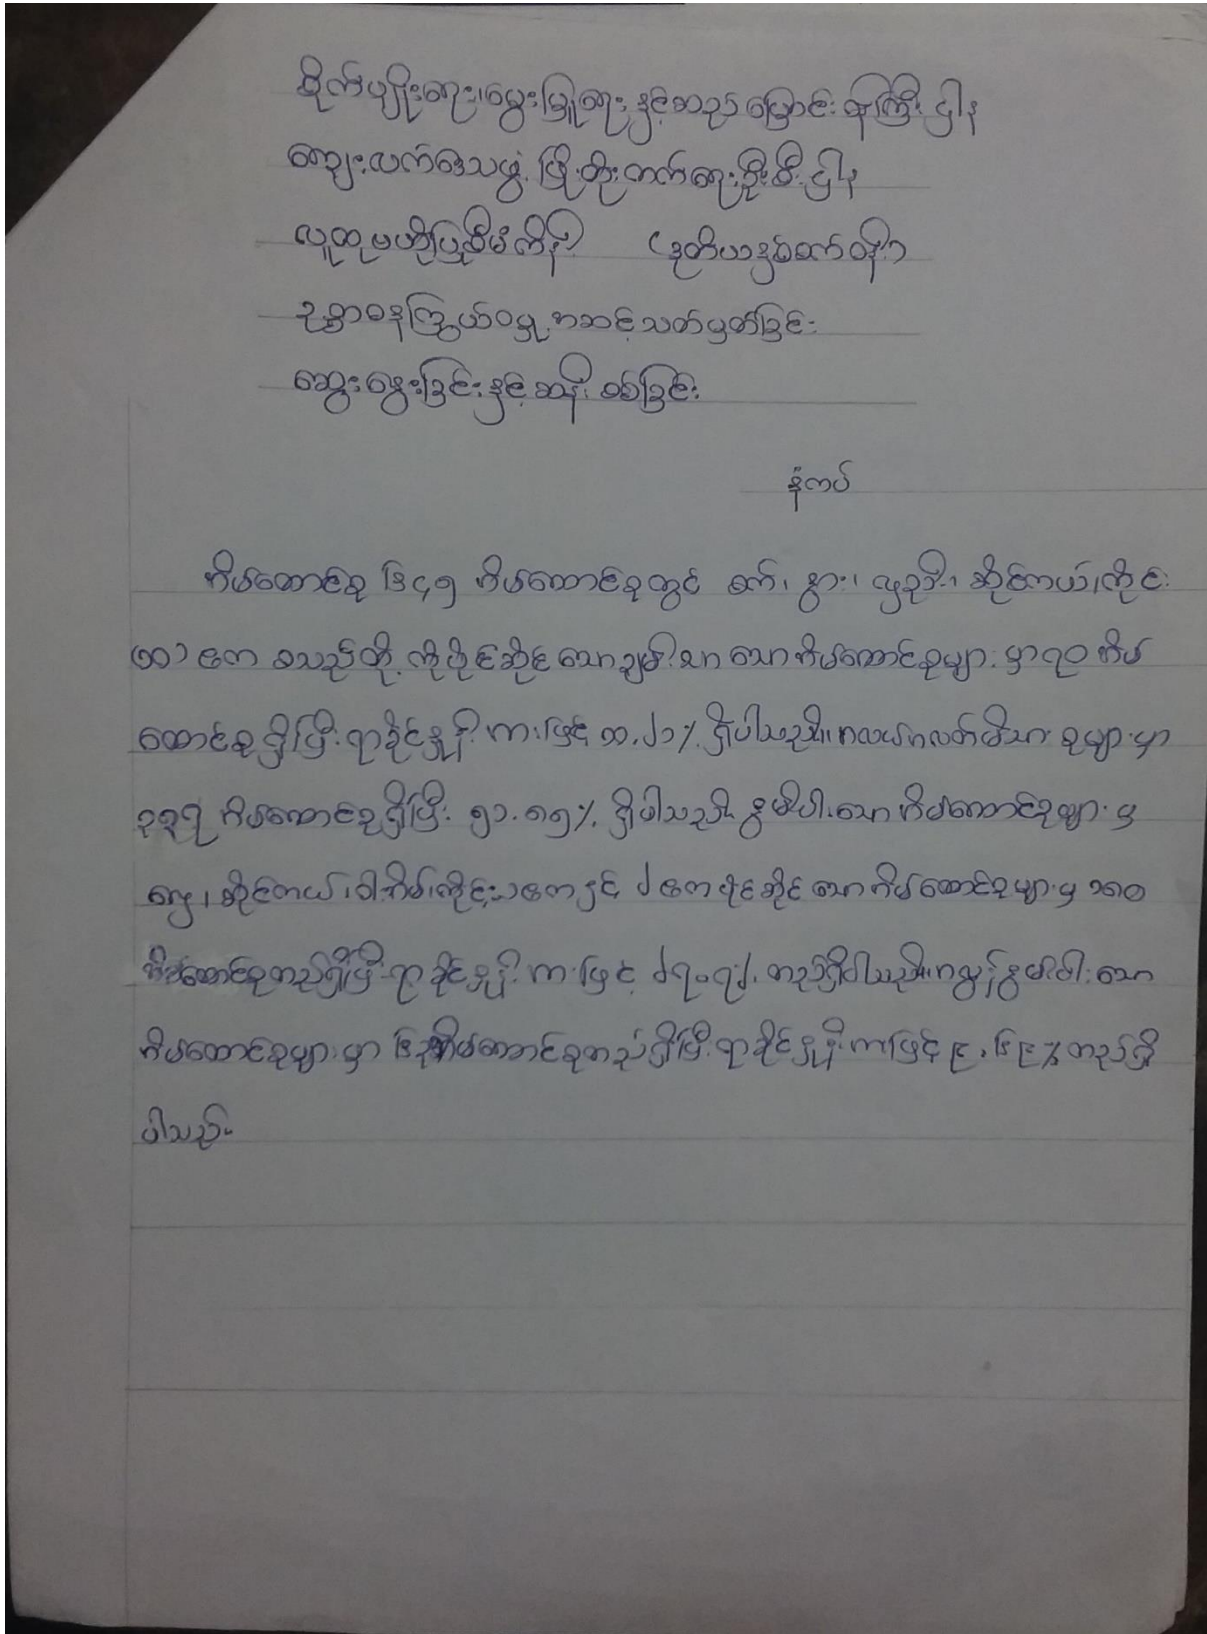 စိုက်ပျိုးရေး၊မွေးမြူရေးနှင့်ဆည်မြောင်းဝန်ကြီးဌါန
ကျေးလက်ဒေသဖွံ့ဖြိုးတိုးတက်ရေးဦးစီးဌါန
လူထုဗဟိုပြုစီမံကိန်း (ဒုတိယနှစ်စက်ဝန်း)
ဥစ္စာဓနကြွယ်ဝမှုအဆင့်သတ်မှတ်ခြင်း
ဆွေးနွေးခြင်းနှင့်ဆန်းစစ်ခြင်း
နံကပ်
အိမ်ထောင်စု ၆၄၅ အိမ်ထောင်စုတွင် စက်၊ နွား၊ လှည်း၊ ဆိုင်ကယ်၊ကိုင်း
၁၀ ဧက စသည်တို့ ကိုပိုင်ဆိုင်သောချမ်းသာသောအိမ်ထောင်စုများမှာ၇၀ အိမ်
ထောင်စုရှိပြီးရာခိုင်နှုန်းအားဖြင့် ၁၁.၂၁% ရှိပါသည်။အလယ်အလတ်မိသားစုများမှာ
၃၃၇ အိမ်ထောင်စုရှိပြီး ၅၁.၈၅% ရှိပါသည်။ နွမ်းပါးသောအိမ်ထောင်စုများမှ
လှေ၊ ဆိုင်ကယ်၊ဝါးအိမ်၊ကိုင်း၁ဧကနှင့် ၂ ဧကပိုင်ဆိုင်သောအိမ်ထောင်စုများမှ ၁၈၀
အိမ်ထောင်စုတည်ရှိပြီးရာခိုင်နှုန်းအားဖြင့် ၂၇.၇% တည်ရှိပါသည်။အလွန်နွမ်းပါးသော
အိမ်ထောင်စုများမှာ ၆၃အိမ်ထောင်စုတည်ရှိပြီးရာခိုင်နှုန်းအားဖြင့် ၉.၆၉% တည်ရှိ
ပါသည်။